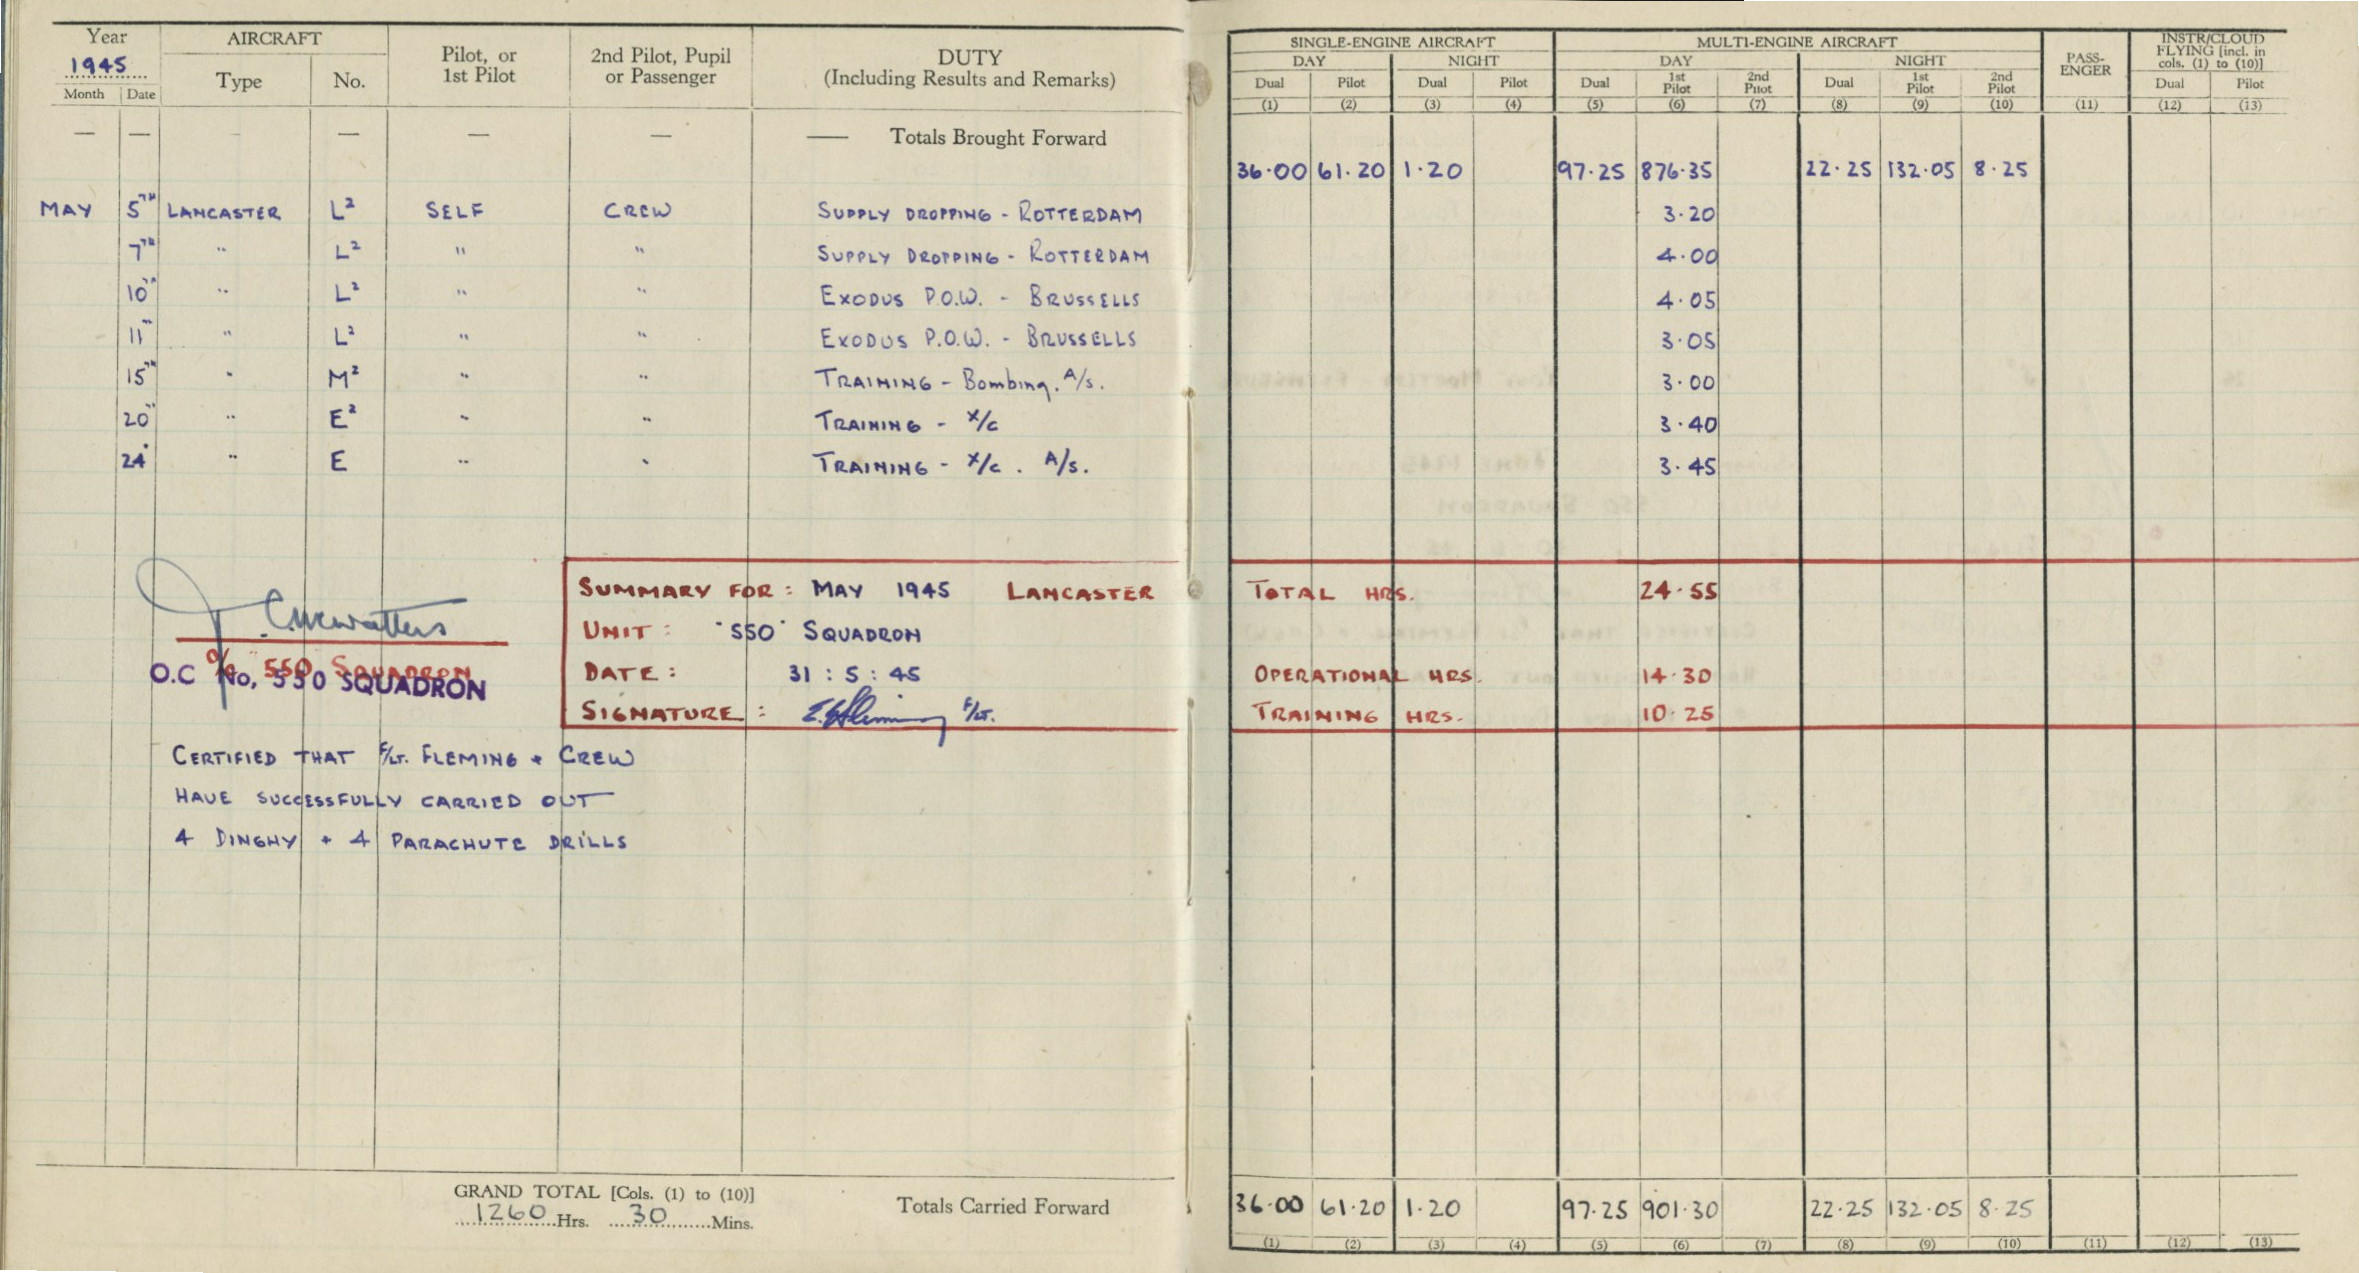 Year AIRCRAFT Pilot, or 1st Pilot 2nd Pilot, Pupil or Passenger DUTY (Including Results and Remarks)
1945 Type No.
Month Date
SINGLE-ENGINE AIRCRAFT MULTI-ENGINE AIRCRAFT PASS-ENGER INSTR/CLOUD FLYING [incl. in cols. (1) to (10)]
DAY NIGHT DAY NIGHT
Dual Pilot Dual Pilot Dual 1st Pilot 2nd Pilot Dual 1st Pilot 2nd Pilot Dual Pilot
(1) (2) (3) (4) (5) (6) (7) (8) (9) (10) (11) (12) (13)
— — - — — — — Totals Brought Forward
36·00 61·20 1·20 97·25 876·35 22·25 132·05 8·25
MAY 5TH LANCASTER L² SELF CREW SUPPLY DROPPING - ROTTERDAM 3·20
7TH " L² " " SUPPLY DROPPING - ROTTERDAM 4·00
10TH " L² " " EXODUS P.O.W. - BRUSSELLS 4·05
11TH " L² " " EXODUS P.O.W. - BRUSSELLS 3·05
15TH " M² " " TRAINING - Bombing. A/S. 3·00
20" " E² " " TRAINING - X/C 3·40
24" " E " " TRAINING - X/C. A/S. 3·45
SUMMARY FOR: MAY 1945 LANCASTER TOTAL HRS. 24·55
UNIT: '550' SQUADRON
DATE: 31:5:45 OPERATIONAL HRS. 14·30
SIGNATURE: F/LT. TRAINING HRS. 10·25
O/C "550" SQUADRON
O.C No. 550 SQUADRON
CERTIFIED THAT F/LT. FLEMING + CREW
HAVE SUCCESSFULLY CARRIED OUT
4 DINGHY + 4 PARACHUTE DRILLS
GRAND TOTAL [Cols. (1) to (10)]
1260 Hrs. 30 Mins.
Totals Carried Forward 36·00 61·20 1·20 97·25 901·30 22·25 132·05 8·25
(1) (2) (3) (4) (5) (6) (7) (8) (9) (10) (11) (12) (13)